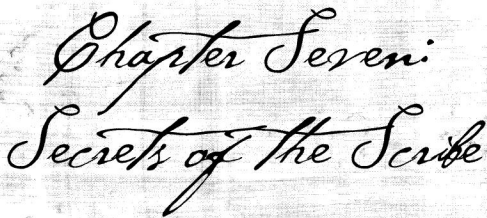 Chapter Seven:
Secrets of the Scribe